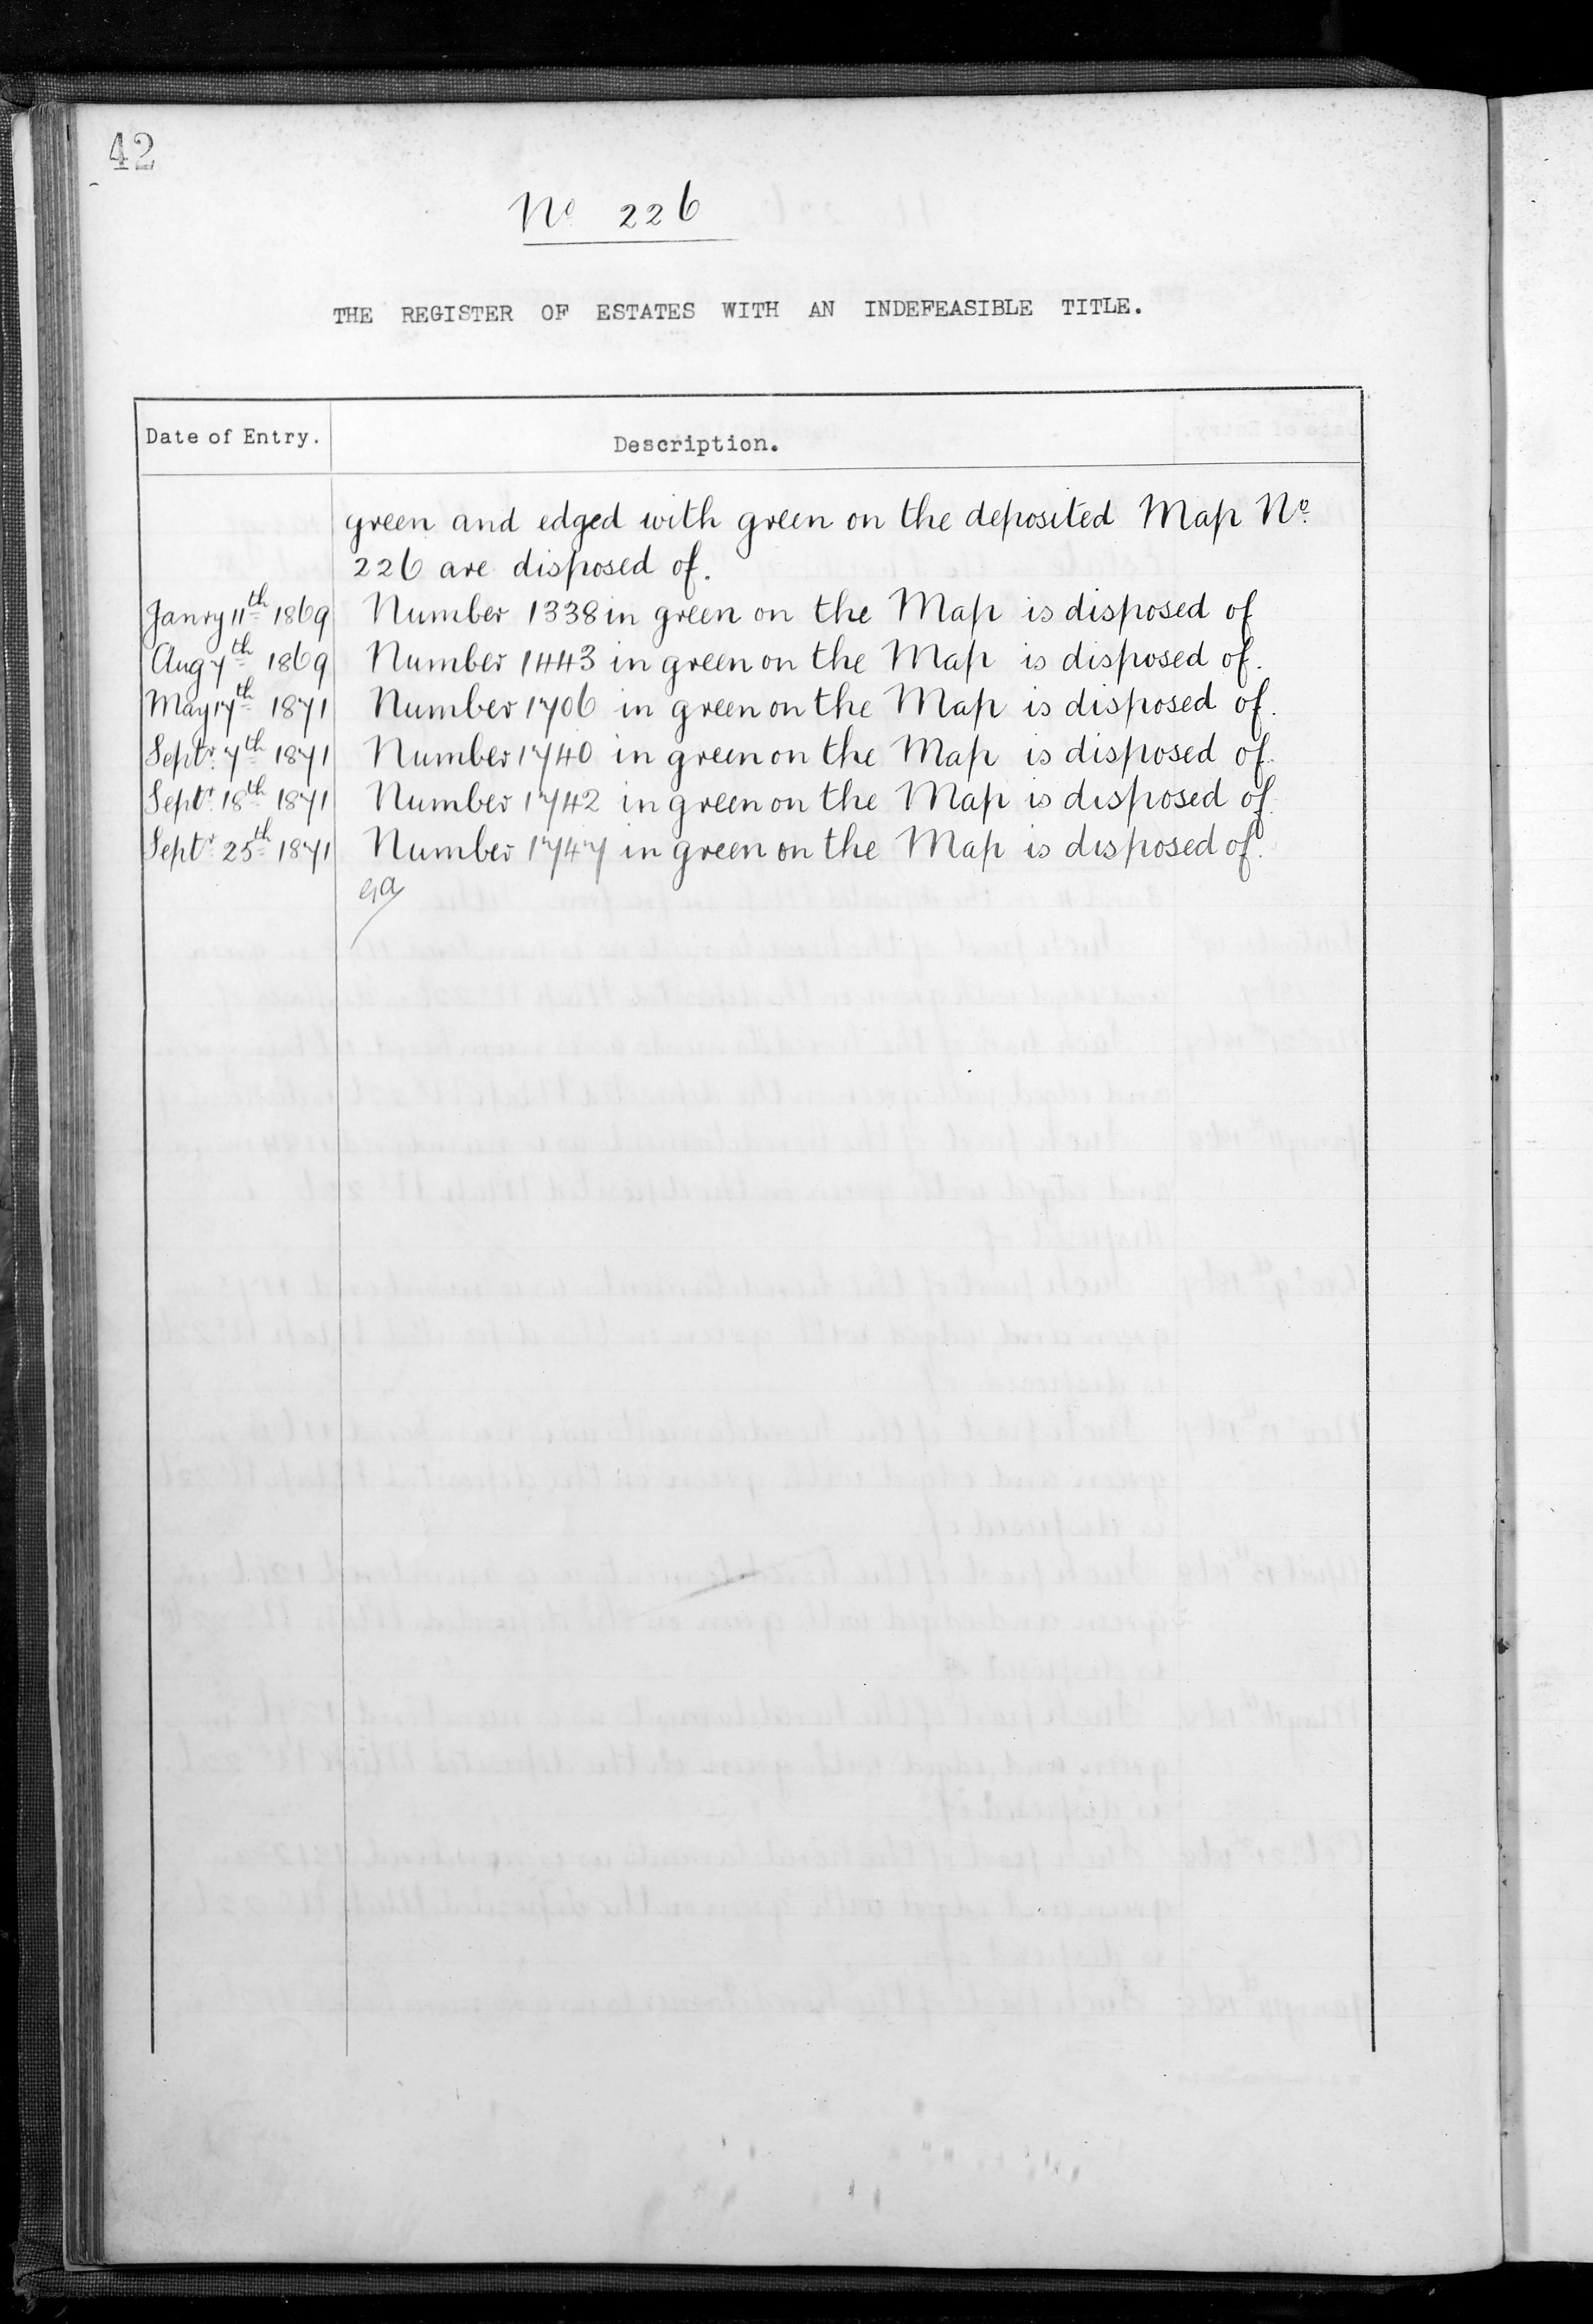 42
No 226
THE REGISTER OF ESTATES WITH AN INDEFEASIBLE TITLE.
Date of Entry. Description.
green and edged with green on the deposited Map No.
226 are disposed of.
Janry 11th 1869 Number 1338 in green on the Map is disposed of
Aug 7th 1869 Number 1443 in green on the Map is disposed of.
May 17th 1871 Number 1706 in green on the Map is disposed of.
Septr. 7th 1871 Number 1740 in green on the Map is disposed of.
Septr. 18th 1871 Number 1742 in green on the Map is disposed of.
Septr. 25th 1871 Number 1747 in green on the Map is disposed of.